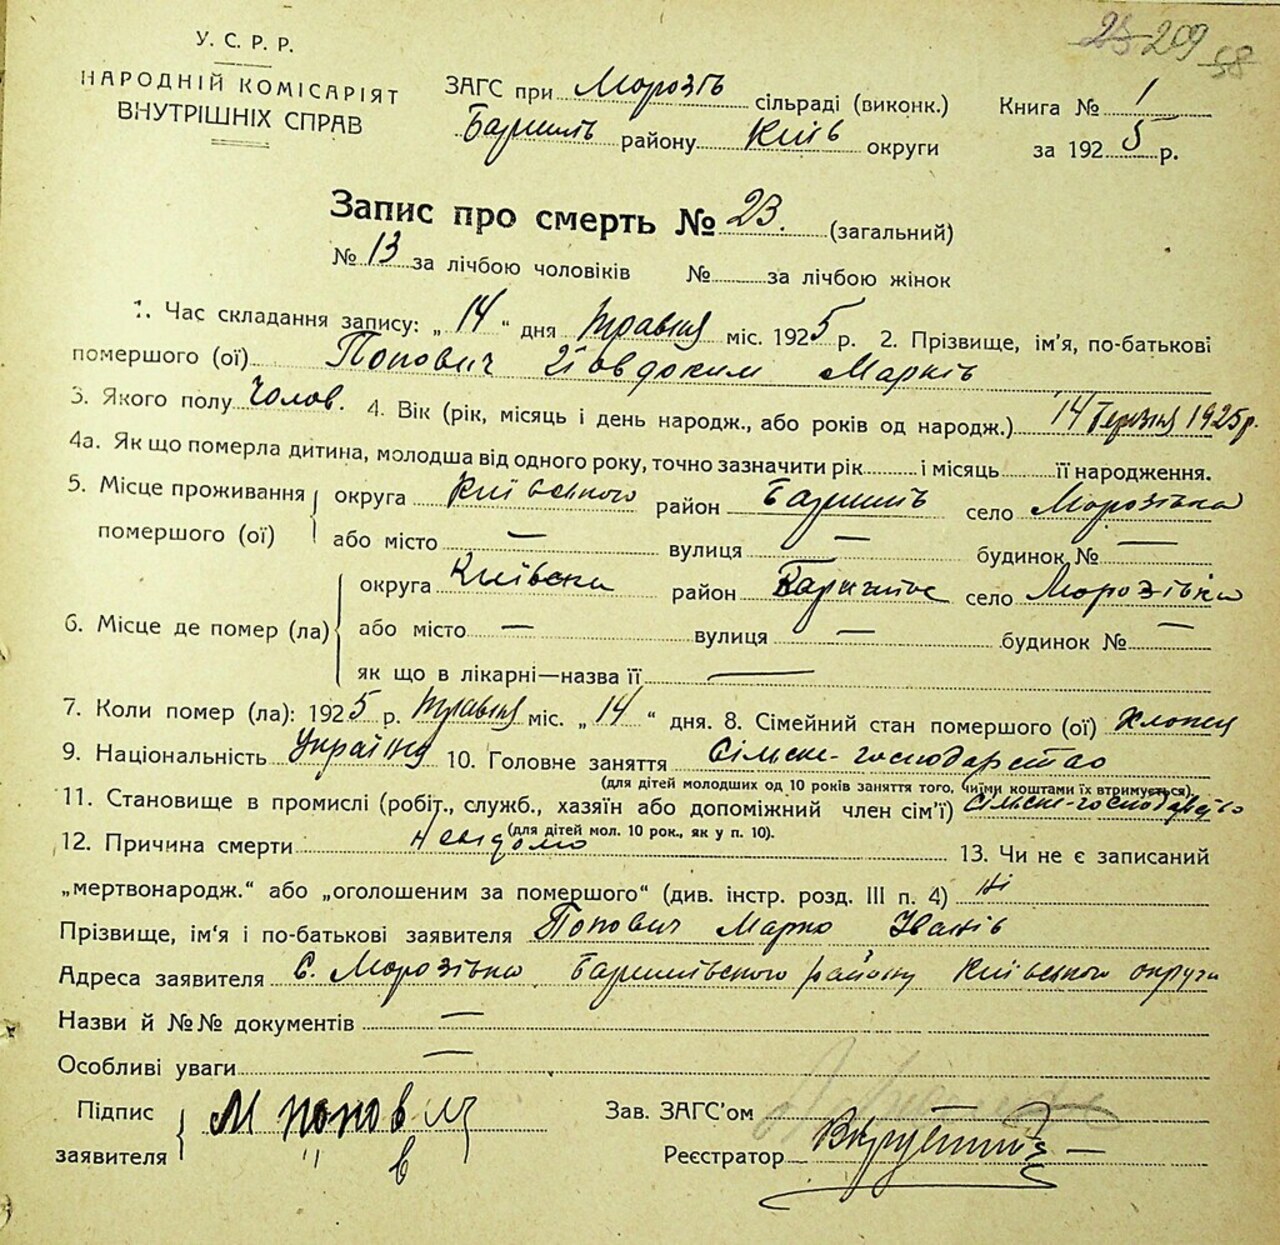 209
58
У. С. Р. Р.
НАРОДНІЙ КОМІСАРІЯТ
ВНУТРІШНІХ СПРАВ
ЗАГС при Морозів сільраді (виконк.)
Баришів району Київ округи
Книга № 1
за 1925 р.
Запис про смерть № 23. (загальний)
№ 13 за лічбою чоловіків № за лічбою жінок
1. Час складання запису: „ 14 “ дня травня міс. 1925 р. 2. Прізвище, ім'я, по-батькові
помершого (ої) Попович Йовдоким Марків
3. Якого полу Чолов. 4. Вік (рік, місяць і день народж., або років од народж.) 14 Березня 1925 р.
4а. Як що померла дитина, молодша від одного року, точно зазначити рік і місяць її народження.
5. Місце проживання помершого (ої) округа Київського район Баришів село Морозівка
або місто — вулиця — будинок № —
6. Місце де помер (ла) округа Київська район Баришів село Морозівка
або місто — вулиця — будинок № —
як що в лікарні—назва її —
7. Коли помер (ла): 1925 р. травня міс. „ 14 “ дня. 8. Сімейний стан помершого (ої) хлопец
9. Національність Україн 10. Головне заняття Сільске-господарство
(для дітей молодших од 10 років заняття того, чиїми коштами їх втримується).
11. Становище в промислі (робіт., служб., хазяїн або допоміжний член сім'ї) Сільске-господарство
(для дітей мол. 10 рок., як у п. 10).
12. Причина смерти невідомо 13. Чи не є записаний
„мертвонародж.“ або „оголошеним за помершого“ (див. інстр. розд. III п. 4) ні
Прізвище, ім'я і по-батькові заявителя Попович Марко Іванів
Адреса заявителя С. Морозівка Баришівського району Київського округи
Назви й №№ документів —
Особливі уваги —
Підпис заявителя М Попович
Зав. ЗАГС'ом
Реєстратор